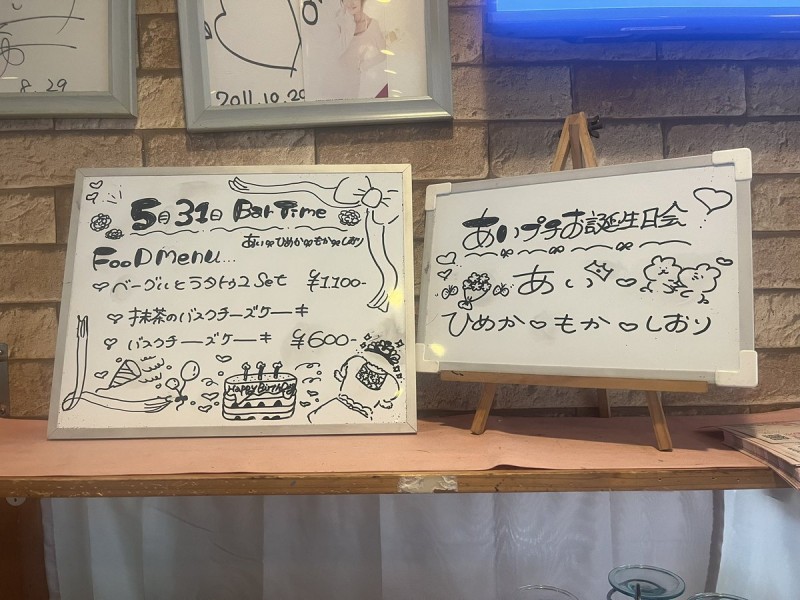 8.29
2011.10.29
5月31日 Bar Time
あい♡ひめか♡もか♡しおり
FooD Menu...
♡ベーグルとラタトゥユ Set ¥1,100-
♡抹茶のバスクチーズケーキ
♡バスクチーズケーキ ¥600-
Happy Birthday
あいプチお誕生日会
あい♡
ひめか♡もか♡しおり